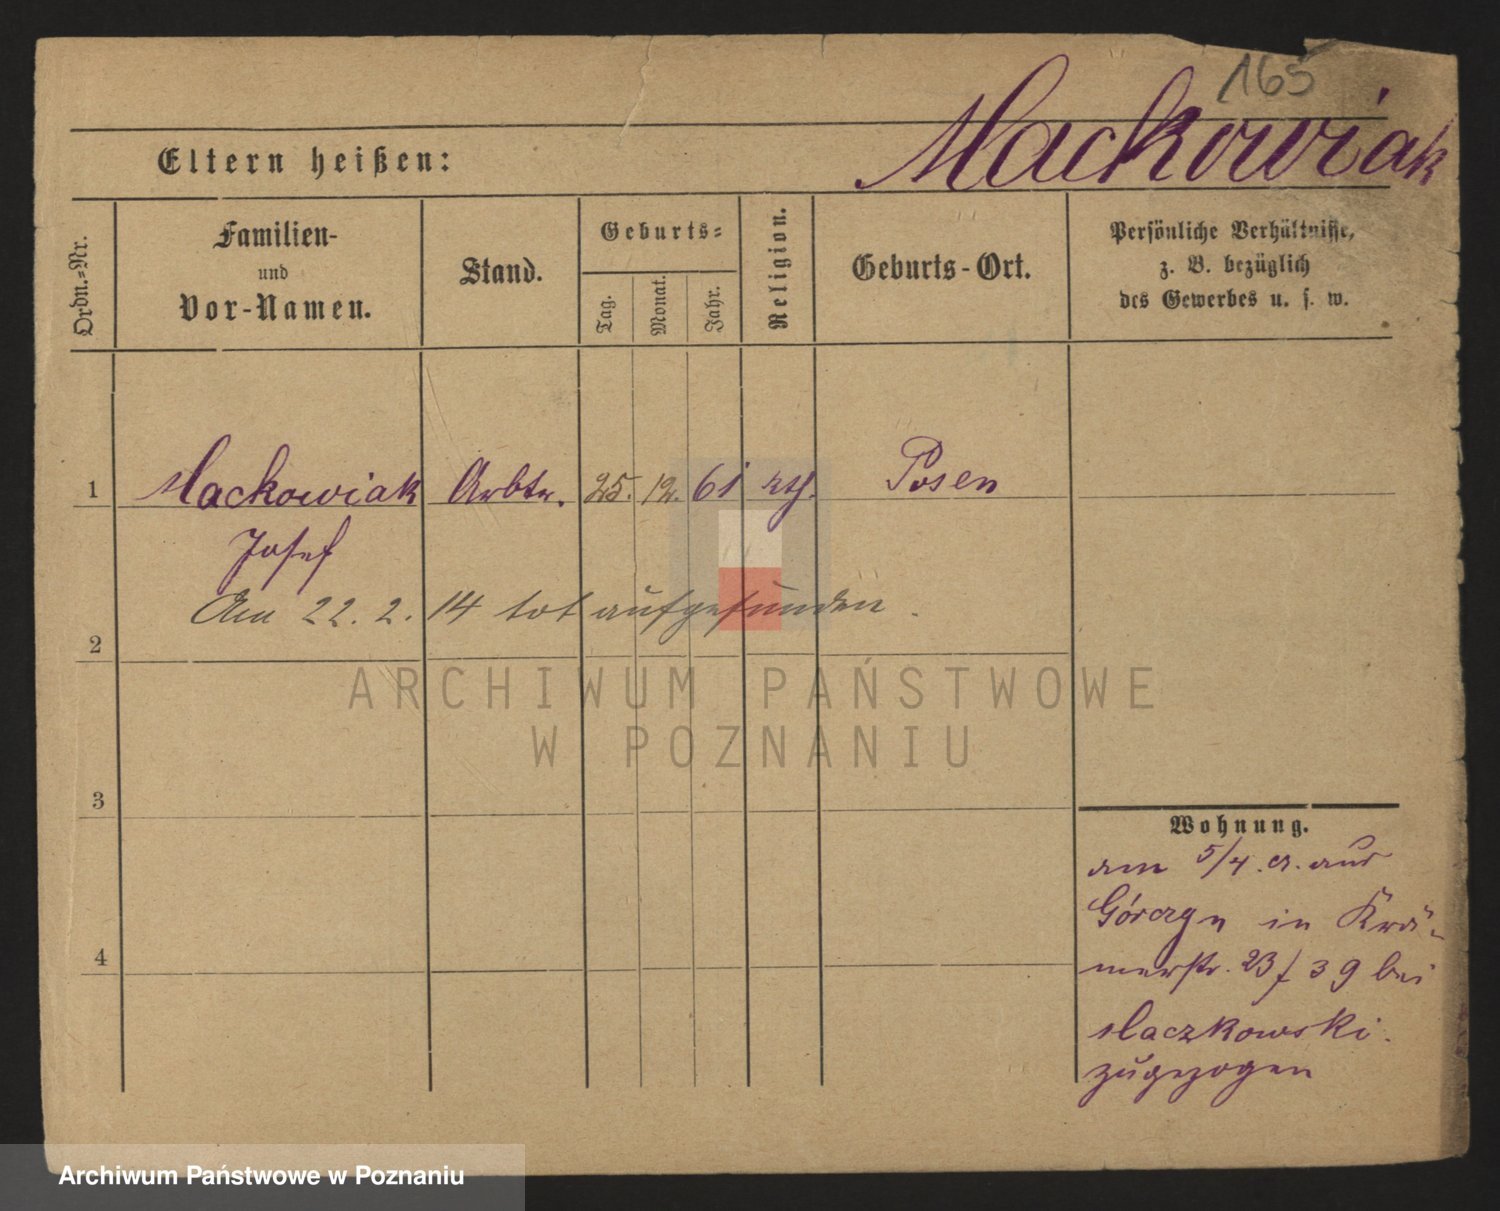 165
Mackowiak
Eltern heißen:
Ordn.=Nr.
Familien-
und
Vor-Namen.
Stand.
Geburts=
Tag.
Monat.
Jahr.
Religion.
Geburts-Ort.
Persönliche Verhältnisse,
z. B. bezüglich
des Gewerbes u. s. w.
1 Mackowiak Arbtr. 25. 12. 61 Posen
Josef
Am 22. 2. 14 tot aufgefunden.
2
3
4
Wohnung.
am 5/4. cr. aus
Górczyn in Krä-
merstr. 23/39 bei
Maczkowski.
zugezogen
ARCHIWUM PAŃSTWOWE
W POZNANIU
Archiwum Państwowe w Poznaniu